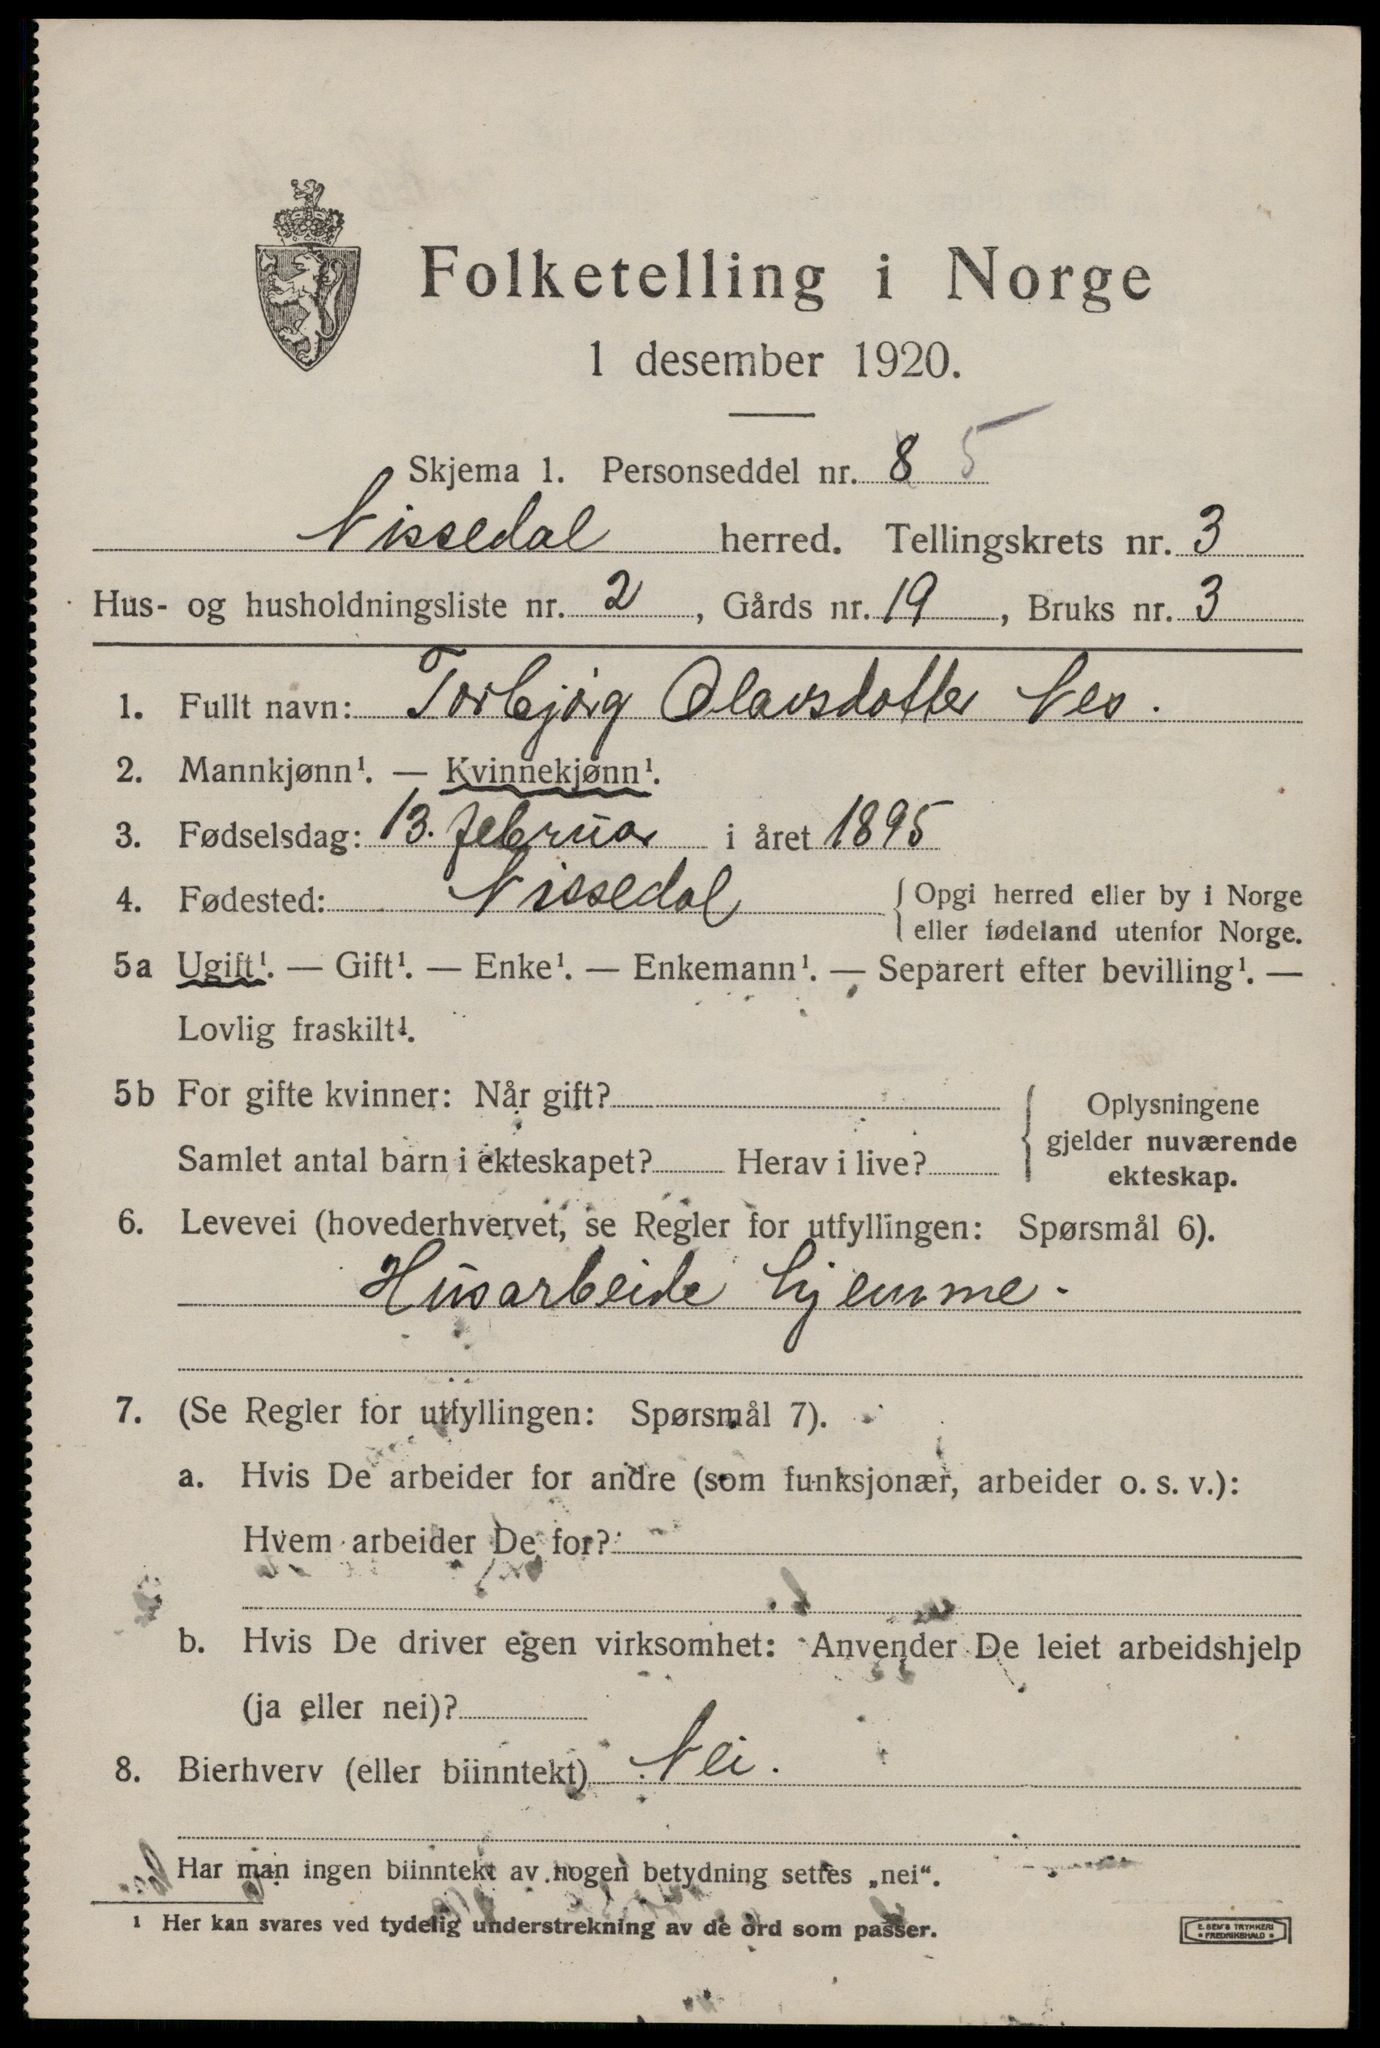 Folketelling i Norge
1 desember 1920.
Skjema 1. Personseddel nr. 8 5
Nissedal herred. Tellingskrets nr. 3
Hus- og husholdningsliste nr. 2, Gårds nr. 19, Bruks nr. 3
1. Fullt navn: Torbjørg Olavsdotter Nes.
2. Mannkjønn¹. — Kvinnekjønn¹.
3. Fødselsdag: 13. februar i året 1895
4. Fødested: Nissedal { Opgi herred eller by i Norge
eller fødeland utenfor Norge.
5a Ugift¹. — Gift¹. — Enke¹. — Enkemann¹. — Separert efter bevilling¹. —
Lovlig fraskilt¹.
5b For gifte kvinner: Når gift?
Samlet antal barn i ekteskapet? Herav i live?
{ Oplysningene
gjelder nuværende
ekteskap.
6. Levevei (hovederhvervet, se Regler for utfyllingen: Spørsmål 6).
Husarbeide hjemme.
7. (Se Regler for utfyllingen: Spørsmål 7).
a. Hvis De arbeider for andre (som funksjonær, arbeider o. s. v.):
Hvem arbeider De for?
b. Hvis De driver egen virksomhet: Anvender De leiet arbeidshjelp
(ja eller nei)?
8. Bierhverv (eller biinntekt) Nei.
Har man ingen biinntekt av nogen betydning settes „nei“.
¹ Her kan svares ved tydelig understrekning av de ord som passer.
E. SEM'S TRYKKERI
• FREDRIKSHALD •